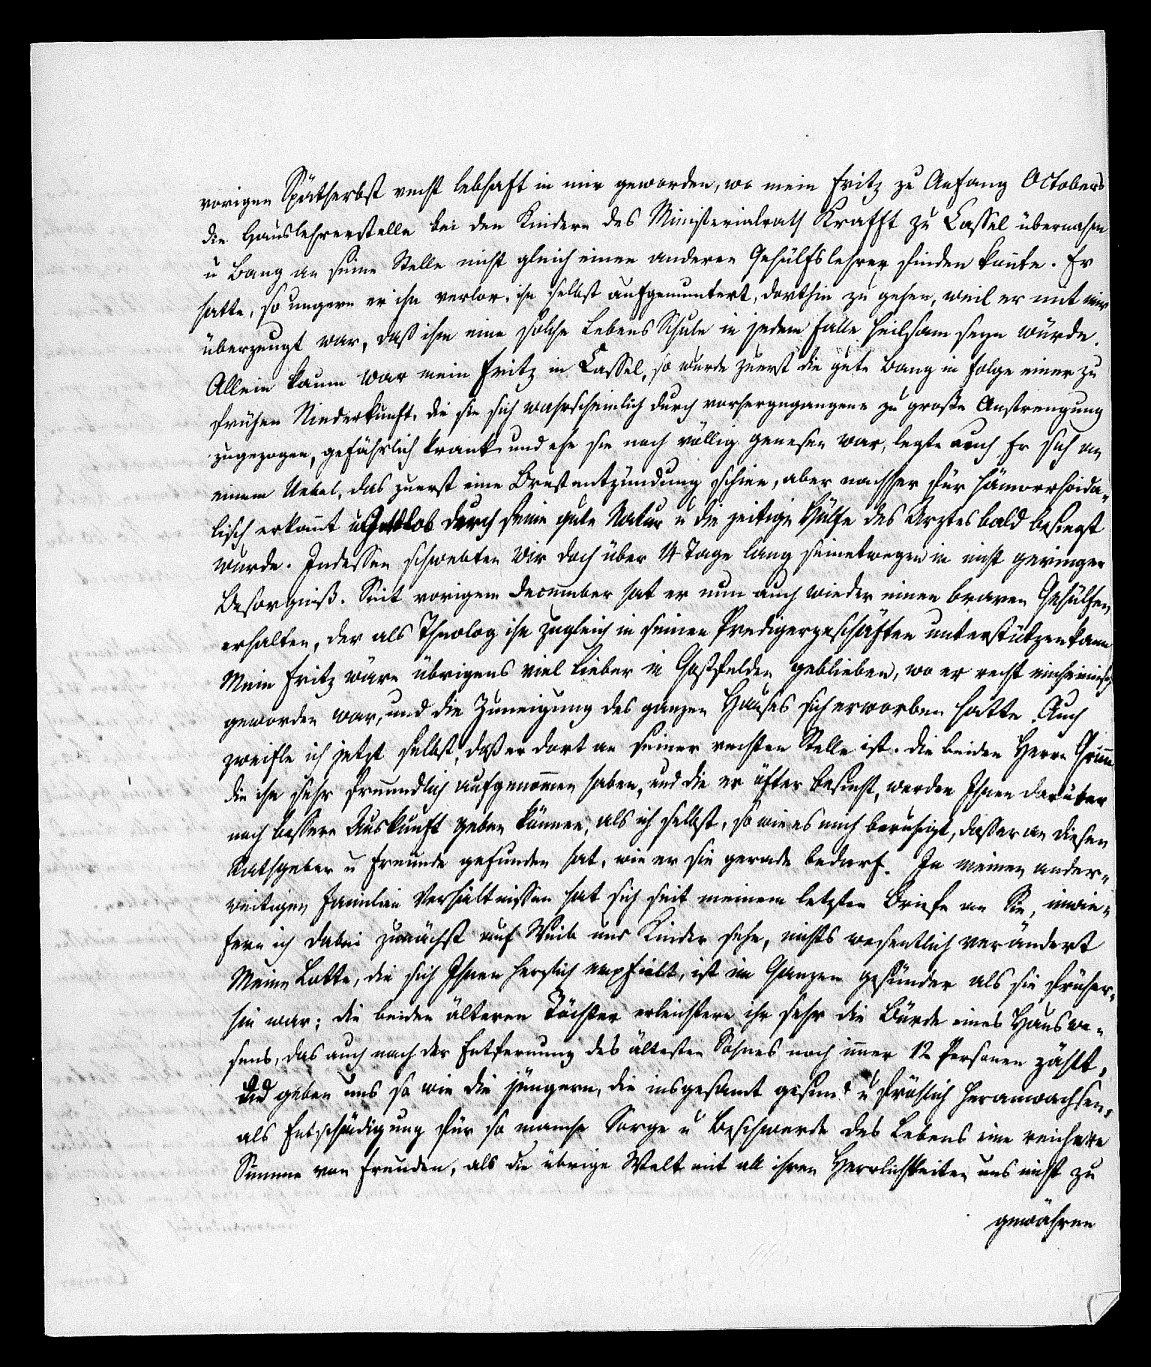 vorigen Spätherbst recht lebhaft in mir geworden, wo mein Fritz zu Anfang Octobers
die Hauslehrerstelle bei den Kindern des Ministerialrath Krafft zu Cassel übernahm
u Bang an seine Stelle nicht gleich einen anderen Gehülfslehrer finden konnte. Er
hatte, so ungern er ihn verlor, ihn selbst aufgemuntert, dorthin zu gehen, weil er mit mir
überzeugt war, daß ihm eine solche Lebens Schule in jedem Falle heilsam seyn würde.
Allein kaum war mein Fritz in Cassel, so wurde zuerst die gute Bang in Folge einer zu
frühen Niederkunft, die sie sich wahrscheinlich durch vorhergegangene zu große Anstrengung
zugezogen, gefährlich krank und ehe sie noch völlig genesen war, legte auch Er sich an
einem Uebel, das zuerst eine Brustentzündung schien, aber nachher für hämorrhoida-
lisch erkannt u Gottlob durch seine gute Natur u die zeitige Hülfe des Arztes bald besiegt
wurde. Indessen schwebten wir doch über 14 Tage lang seinetwegen in nicht geringer
Besorgniß. Seit vorigem December hat er nun auch wieder einen braven Gehülfen
erhalten, der als Theolog ihn zugleich in seinen Predigergeschäften unterstützen kann
Mein Fritz wäre übrigens viel lieber in Goßfelden geblieben, wo er recht einheimisch
geworden war, und die Zuneigung des ganzen Hauses sich erworben hatte. Auch
zweifle ich jetzt selbst, daß er dort an seiner rechten Stelle ist. Die beiden Herrn Grimm
die ihn sehr freundlich aufgenommen haben, und die er öfter besucht, werden Ihnen darüber
noch bessere Auskunft geben können, als ich selbst, so wie es mich beruhigt, daß er an diesen
Rathgeber u Freunde gefunden hat, wie er sie gerade bedarf. In meinen ander-
weitigen Familien Verhältnissen hat sich seit meinem letzten Briefe an Sie, inwie-
fern ich dabei zunächst auf Weib und Kinder sehe, nichts wesentlich verändert
Meine Lotte, die sich Ihnen herzlich empfielt, ist im Ganzen gesünder als sie früher-
hin war; die beiden älteren Töchter erleichtern ihr sehr die Bürde eines Hauswe-
sens, das auch nach der Entfernung des ältesten Sohnes noch immer 12 Personen zählt,
und geben uns so wie die jüngern, die insgesamt gesund u fröhlich heranwachsen,
als Entschädigung für so manche Sorge u Beschwerde des Lebens eine reichere
Summe von Freuden, als die übrige Welt mit all ihren Herrlichkeiten uns nicht zu
gewähren